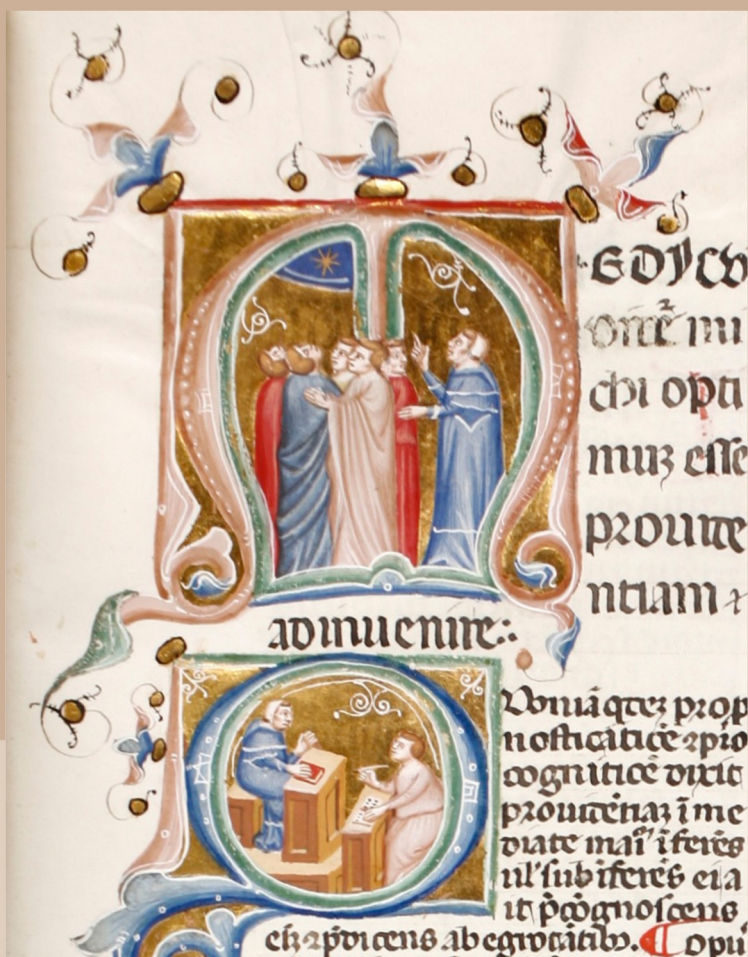 MEDYCU
omē mi
chi opti
muꝫ esse
prouide
ntiam ⁊
adinuenire:·
Quoniā prop
nosticātice ⁊pro
cogniticē dixit
prouidētiaꝫ ī me
diate īferēs
ul' sub īferēs ei a
it p̄cōgnoscens
⁊p̄dicens ab egrotātibꝯ. ¶ Opu